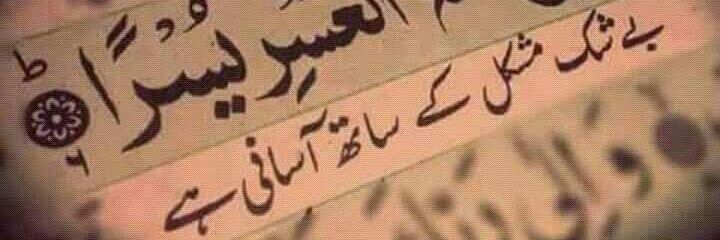 الْعُسْرِ يُسْرًا ۶ ط
بے شک مشکل کے ساتھ آسانی ہے